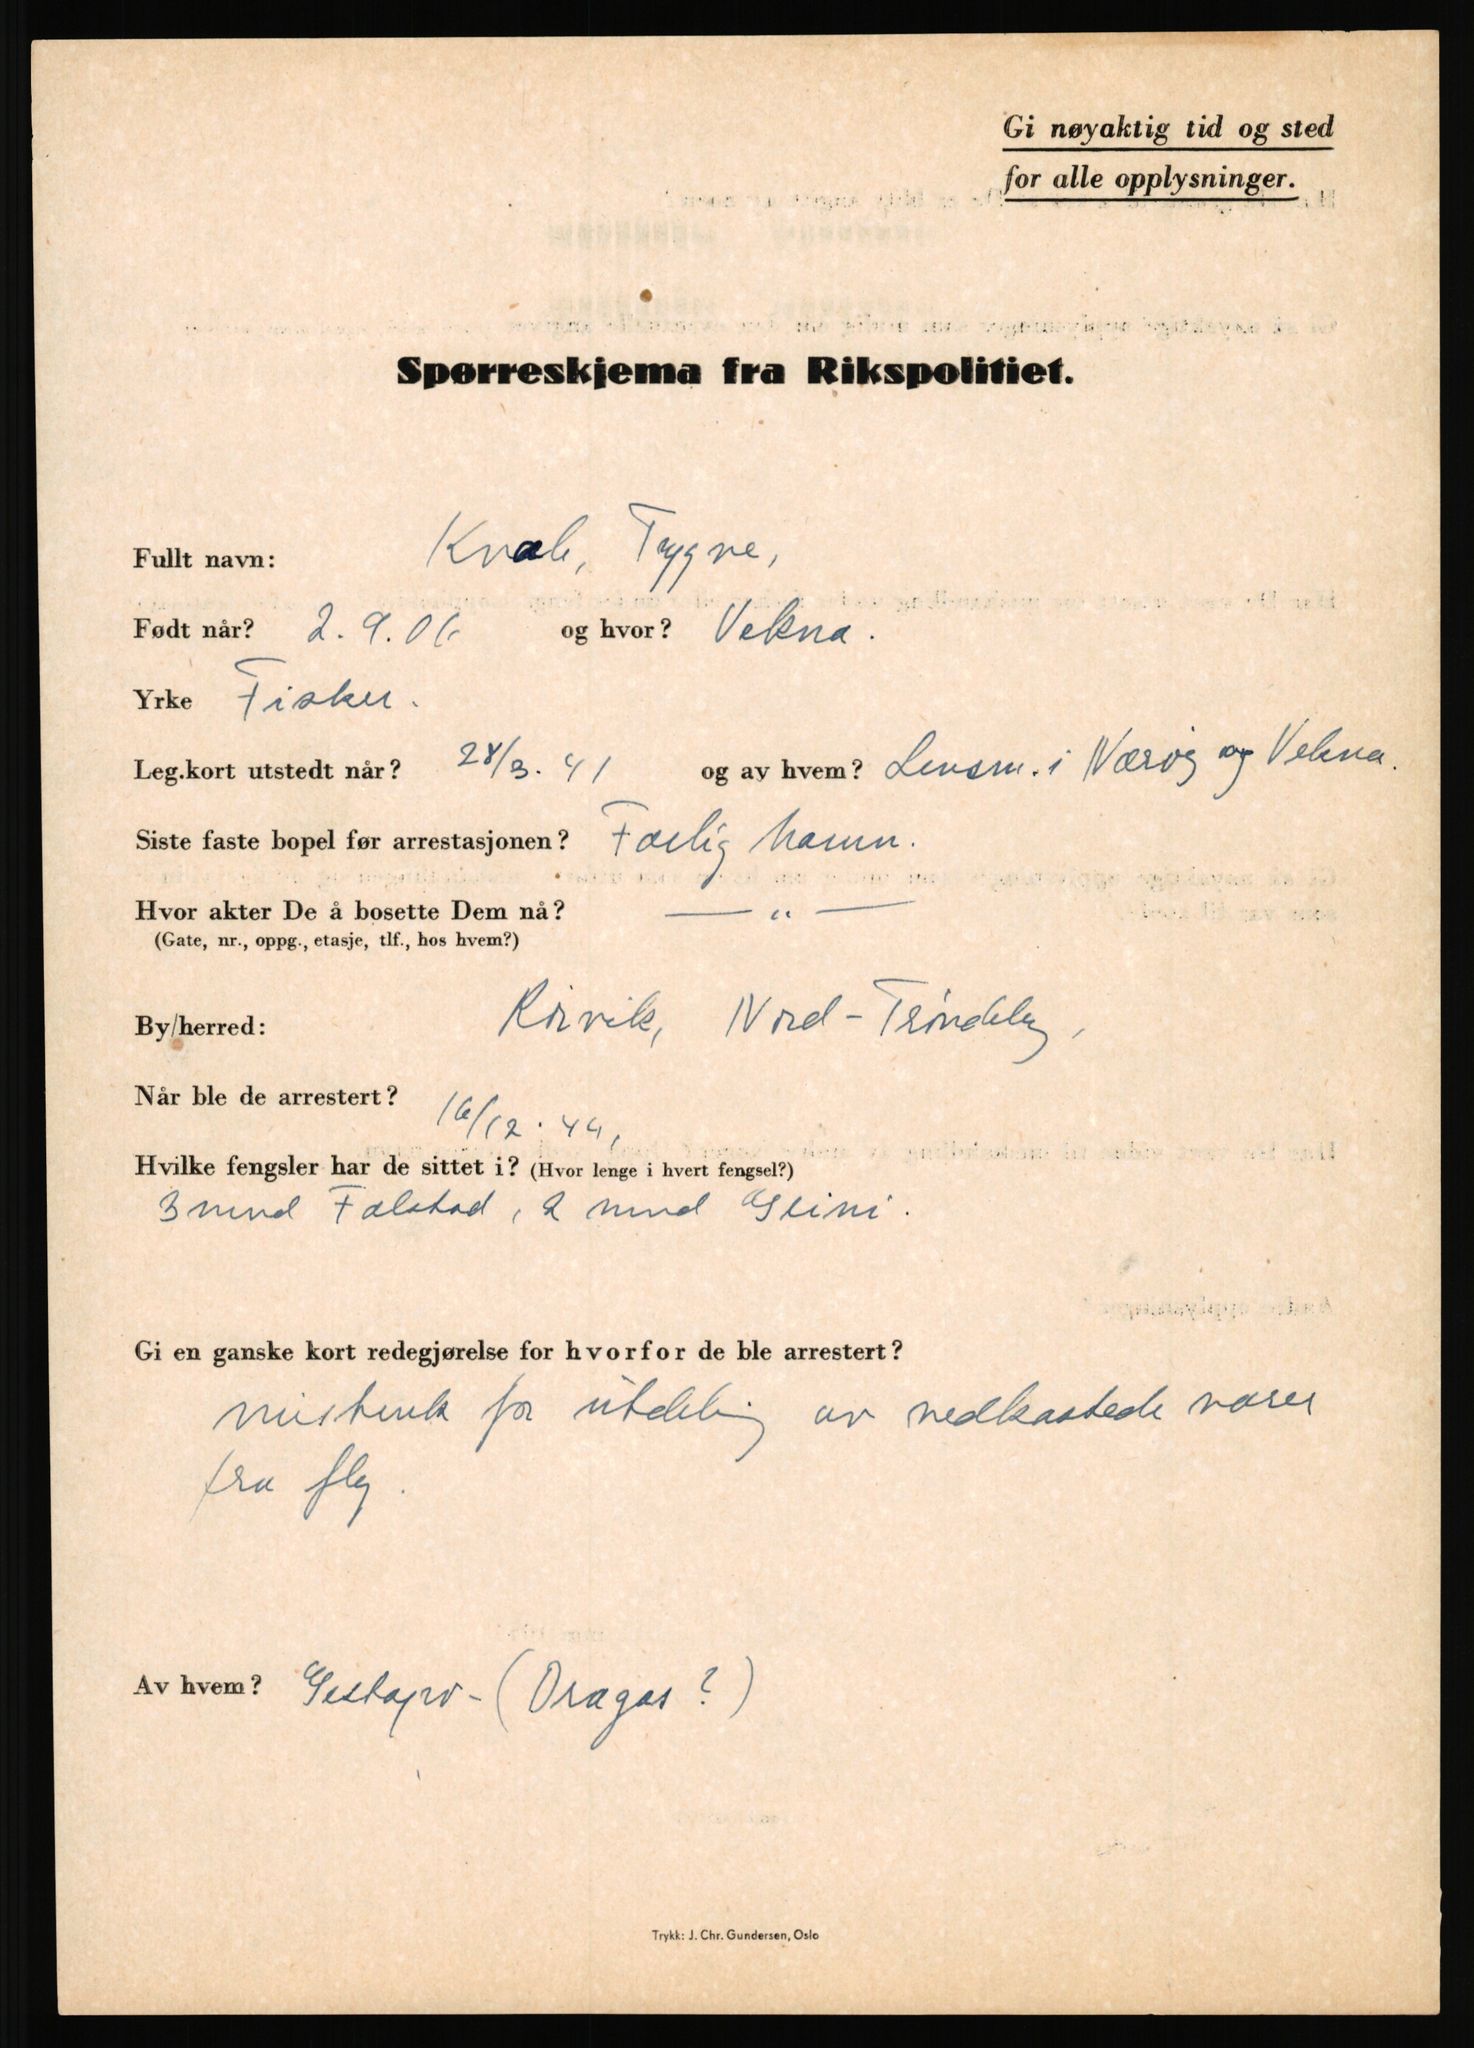 Gi nøyaktig tid og sted
for alle opplysninger.
Spørreskjema fra Rikspolitiet.
Fullt navn: Kvale, Trygve,
Født når? 2.9.06 og hvor? Vekna.
Yrke Fisker.
Leg.kort utstedt når? 28/3.41 og av hvem? Lensm. i Nærøy og Vekna.
Siste faste bopel før arrestasjonen? Farlig havn.
Hvor akter De å bosette Dem nå? — " —
(Gate, nr., oppg., etasje, tlf., hos hvem?)
By/herred: Rørvik, Nord-Trøndelag,
Når ble de arrestert? 16/12.44,
Hvilke fengsler har de sittet i? (Hvor lenge i hvert fengsel?)
3 mnd Falstad, 2 mnd Grini.
Gi en ganske kort redegjørelse for hvorfor de ble arrestert?
mistenk for utdeling av nedkastede varer
fra fly.
Av hvem? Gestapo - (Dragas?)
Trykk: J. Chr. Gundersen, Oslo